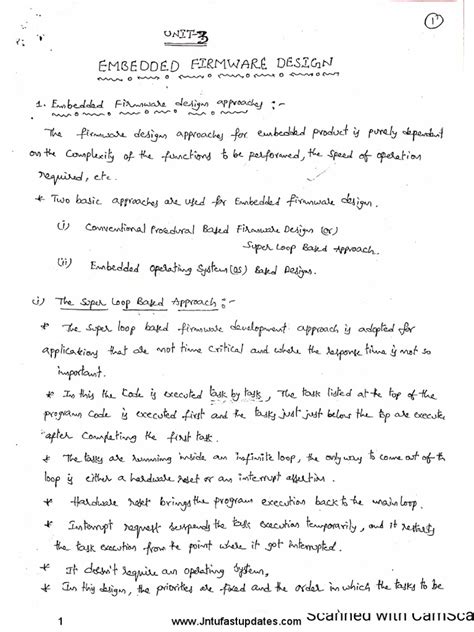 1
UNIT-3
EMBEDDED FIRMWARE DESIGN
1. Embedded Firmware design approaches :-
The firmware design approaches for embedded product is purely dependent
on the Complexity of the functions to be performed, the speed of operation
required, etc.
* Two basic approaches are used for Embedded firmware design.
(i) Conventional Procedural Based Firmware Design (or)
Super Loop Based Approach.
(ii) Embedded Operating System (OS) Based Design.
(i) The Super Loop Based Approach :-
* The super loop based firmware development approach is adopted for
applications that are not time critical and where the response time is not so
important.
* In this the Code is executed task by task, The task listed at the top of the
program code is executed first and the tasks just just below the top are execute
after Completing the first task.
* The tasks are running inside an infinite loop, the only way to come out of th
loop is either a hardware reset or an interrupt assertion.
* Hardware reset brings the program execution back to the main loop.
* Interrupt request suspends the task execution temporarily, and it restarts
the task execution from the point where it got interrupted.
* It doesn't require an operating System,
* In this design, the priorities are fixed and the order in which the tasks to be
Scanned with CamSca
1
www.Jntufastupdates.com